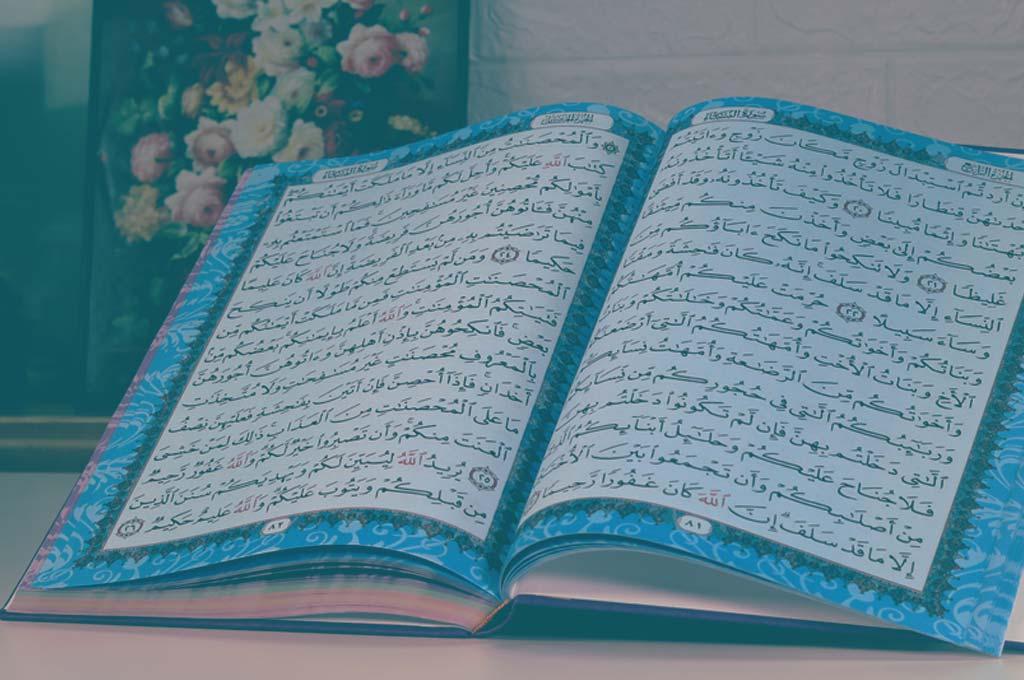 سُورَةُ النِّسَاءِ
الجُزْءُ الرَّابِعُ
وَإِنْ أَرَدتُّمُ ٱسْتِبْدَالَ زَوْجٍ مَّكَانَ زَوْجٍ وَءَاتَيْتُمْ
قِنطَارًا فَلَا تَأْخُذُوا۟ مِنْهُ شَيْـًٔا أَتَأْخُذُونَهُۥ
بُهْتَـٰنًا وَإِثْمًا مُّبِينًا ٢٠ وَكَيْفَ تَأْخُذُونَهُۥ وَقَدْ أَفْضَىٰ
بَعْضُكُمْ إِلَىٰ بَعْضٍ وَأَخَذْنَ مِنكُم مِّيثَـٰقًا
غَلِيظًا ٢١ وَلَا تَنكِحُوا۟ مَا نَكَحَ ءَابَآؤُكُم مِّنَ
ٱلنِّسَآءِ إِلَّا مَا قَدْ سَلَفَ إِنَّهُۥ كَانَ فَـٰحِشَةً وَمَقْتًا
وَسَآءَ سَبِيلًا ٢٢ حُرِّمَتْ عَلَيْكُمْ أُمَّهَـٰتُكُمْ
وَبَنَاتُكُمْ وَأَخَوَٰتُكُمْ وَعَمَّـٰتُكُمْ وَخَـٰلَـٰتُكُمْ وَبَنَاتُ
ٱلْأَخِ وَبَنَاتُ ٱلْأُخْتِ وَأُمَّهَـٰتُكُمُ ٱلَّـٰتِىٓ أَرْضَعْنَكُمْ
وَأَخَوَٰتُكُم مِّنَ ٱلرَّضَـٰعَةِ وَأُمَّهَـٰتُ نِسَآئِكُمْ
وَرَبَـٰٓئِبُكُمُ ٱلَّـٰتِى فِى حُجُورِكُم مِّن نِّسَآئِكُمُ
ٱلَّـٰتِى دَخَلْتُم بِهِنَّ فَإِن لَّمْ تَكُونُوا۟ دَخَلْتُم بِهِنَّ
فَلَا جُنَاحَ عَلَيْكُمْ وَحَلَـٰٓئِلُ أَبْنَآئِكُمُ ٱلَّذِينَ
مِنْ أَصْلَـٰبِكُمْ وَأَن تَجْمَعُوا۟ بَيْنَ ٱلْأُخْتَيْنِ
إِلَّا مَا قَدْ سَلَفَ إِنَّ ٱللَّهَ كَانَ غَفُورًا رَّحِيمًا
٨١
الجُزْءُ الخَامِسُ
سُورَةُ النِّسَاءِ
وَٱلْمُحْصَنَـٰتُ مِنَ ٱلنِّسَآءِ إِلَّا مَا مَلَكَتْ أَيْمَـٰنُكُمْ
كِتَـٰبَ ٱللَّهِ عَلَيْكُمْ وَأُحِلَّ لَكُم مَّا وَرَآءَ ذَٰلِكُمْ أَن تَبْتَغُوا۟
بِأَمْوَٰلِكُم مُّحْصِنِينَ غَيْرَ مُسَـٰفِحِينَ فَمَا ٱسْتَمْتَعْتُم بِهِۦ
مِنْهُنَّ فَـَٔاتُوهُنَّ أُجُورَهُنَّ فَرِيضَةً وَلَا جُنَاحَ عَلَيْكُمْ
فِيمَا تَرَٰضَيْتُم بِهِۦ مِنۢ بَعْدِ ٱلْفَرِيضَةِ إِنَّ ٱللَّهَ كَانَ عَلِيمًا
حَكِيمًا ٢٤ وَمَن لَّمْ يَسْتَطِعْ مِنكُمْ طَوْلًا أَن يَنكِحَ
ٱلْمُحْصَنَـٰتِ ٱلْمُؤْمِنَـٰتِ فَمِن مَّا مَلَكَتْ أَيْمَـٰنُكُم مِّن
فَتَيَـٰتِكُمُ ٱلْمُؤْمِنَـٰتِ وَٱللَّهُ أَعْلَمُ بِإِيمَـٰنِكُم بَعْضُكُم مِّنۢ
بَعْضٍ فَٱنكِحُوهُنَّ بِإِذْنِ أَهْلِهِنَّ وَءَاتُوهُنَّ أُجُورَهُنَّ
بِٱلْمَعْرُوفِ مُحْصَنَـٰتٍ غَيْرَ مُسَـٰفِحَـٰتٍ وَلَا مُتَّخِذَٰتِ
أَخْدَانٍ فَإِذَآ أُحْصِنَّ فَإِنْ أَتَيْنَ بِفَـٰحِشَةٍ فَعَلَيْهِنَّ نِصْفُ
مَا عَلَى ٱلْمُحْصَنَـٰتِ مِنَ ٱلْعَذَابِ ذَٰلِكَ لِمَنْ خَشِىَ
ٱلْعَنَتَ مِنكُمْ وَأَن تَصْبِرُوا۟ خَيْرٌ لَّكُمْ وَٱللَّهُ غَفُورٌ رَّحِيمٌ
٢٥ يُرِيدُ ٱللَّهُ لِيُبَيِّنَ لَكُمْ وَيَهْدِيَكُمْ سُنَنَ ٱلَّذِينَ
مِن قَبْلِكُمْ وَيَتُوبَ عَلَيْكُمْ وَٱللَّهُ عَلِيمٌ حَكِيمٌ ٢٦
٨٢